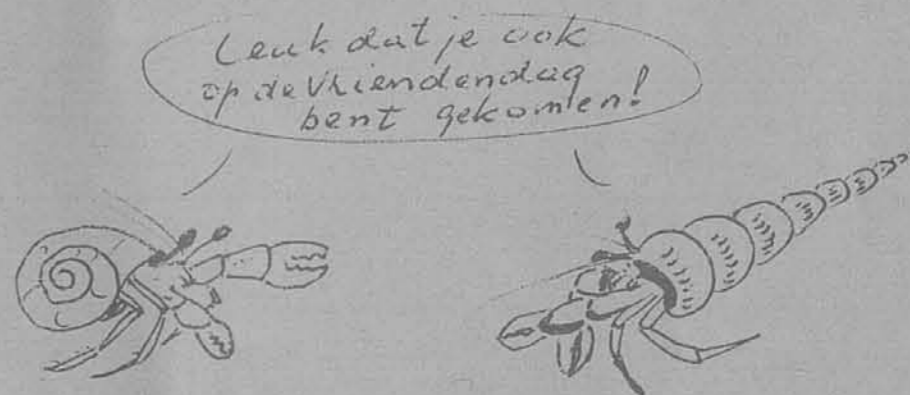 Leuk dat je ook
op de Vriendendag
bent gekomen!